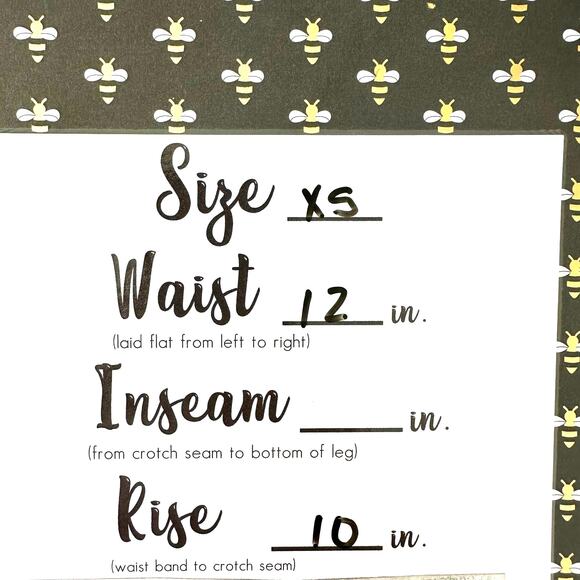 Size XS
Waist 12 in.
(laid flat from left to right)
Inseam ____ in.
(from crotch seam to bottom of leg)
Rise 10 in.
(waist band to crotch seam)